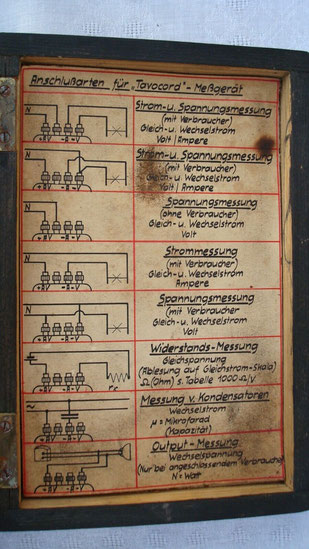 Anschlußarten für „Tavocord"- Meßgerät
N
+AV -A-V
Strom-u. Spannungsmessung
(mit Verbraucher)
Gleich-u. Wechselstrom
Volt/Ampere
N
+AV -A-V
Strom-u. Spannungsmessung
(mit Verbraucher)
Gleich-u. Wechselstrom
Volt/Ampere
N
+AV -A-V
Spannungsmessung
(ohne Verbraucher)
Gleich-u. Wechselstrom
Volt
N
+AV -A-V
Strommessung
(mit Verbraucher)
Gleich-u. Wechselstrom
Ampere
N
+AV -A-V
Spannungsmessung
(mit Verbraucher)
Gleich-u. Wechselstrom
Volt
+AV -A-V
Widerstands-Messung
Gleichspannung
(Ablesung auf Gleichstrom-Skala)
Ω(Ohm) s. Tabelle 1000 Ω/V
~
+AV -A-V
Messung v. Kondensatoren
Wechselstrom
μ = Mikrofarad
(Kapazität)
+AV -A-V
Output-Messung
Wechselspannung
(Nur bei angeschlossendem Verbraucher)
N = Watt